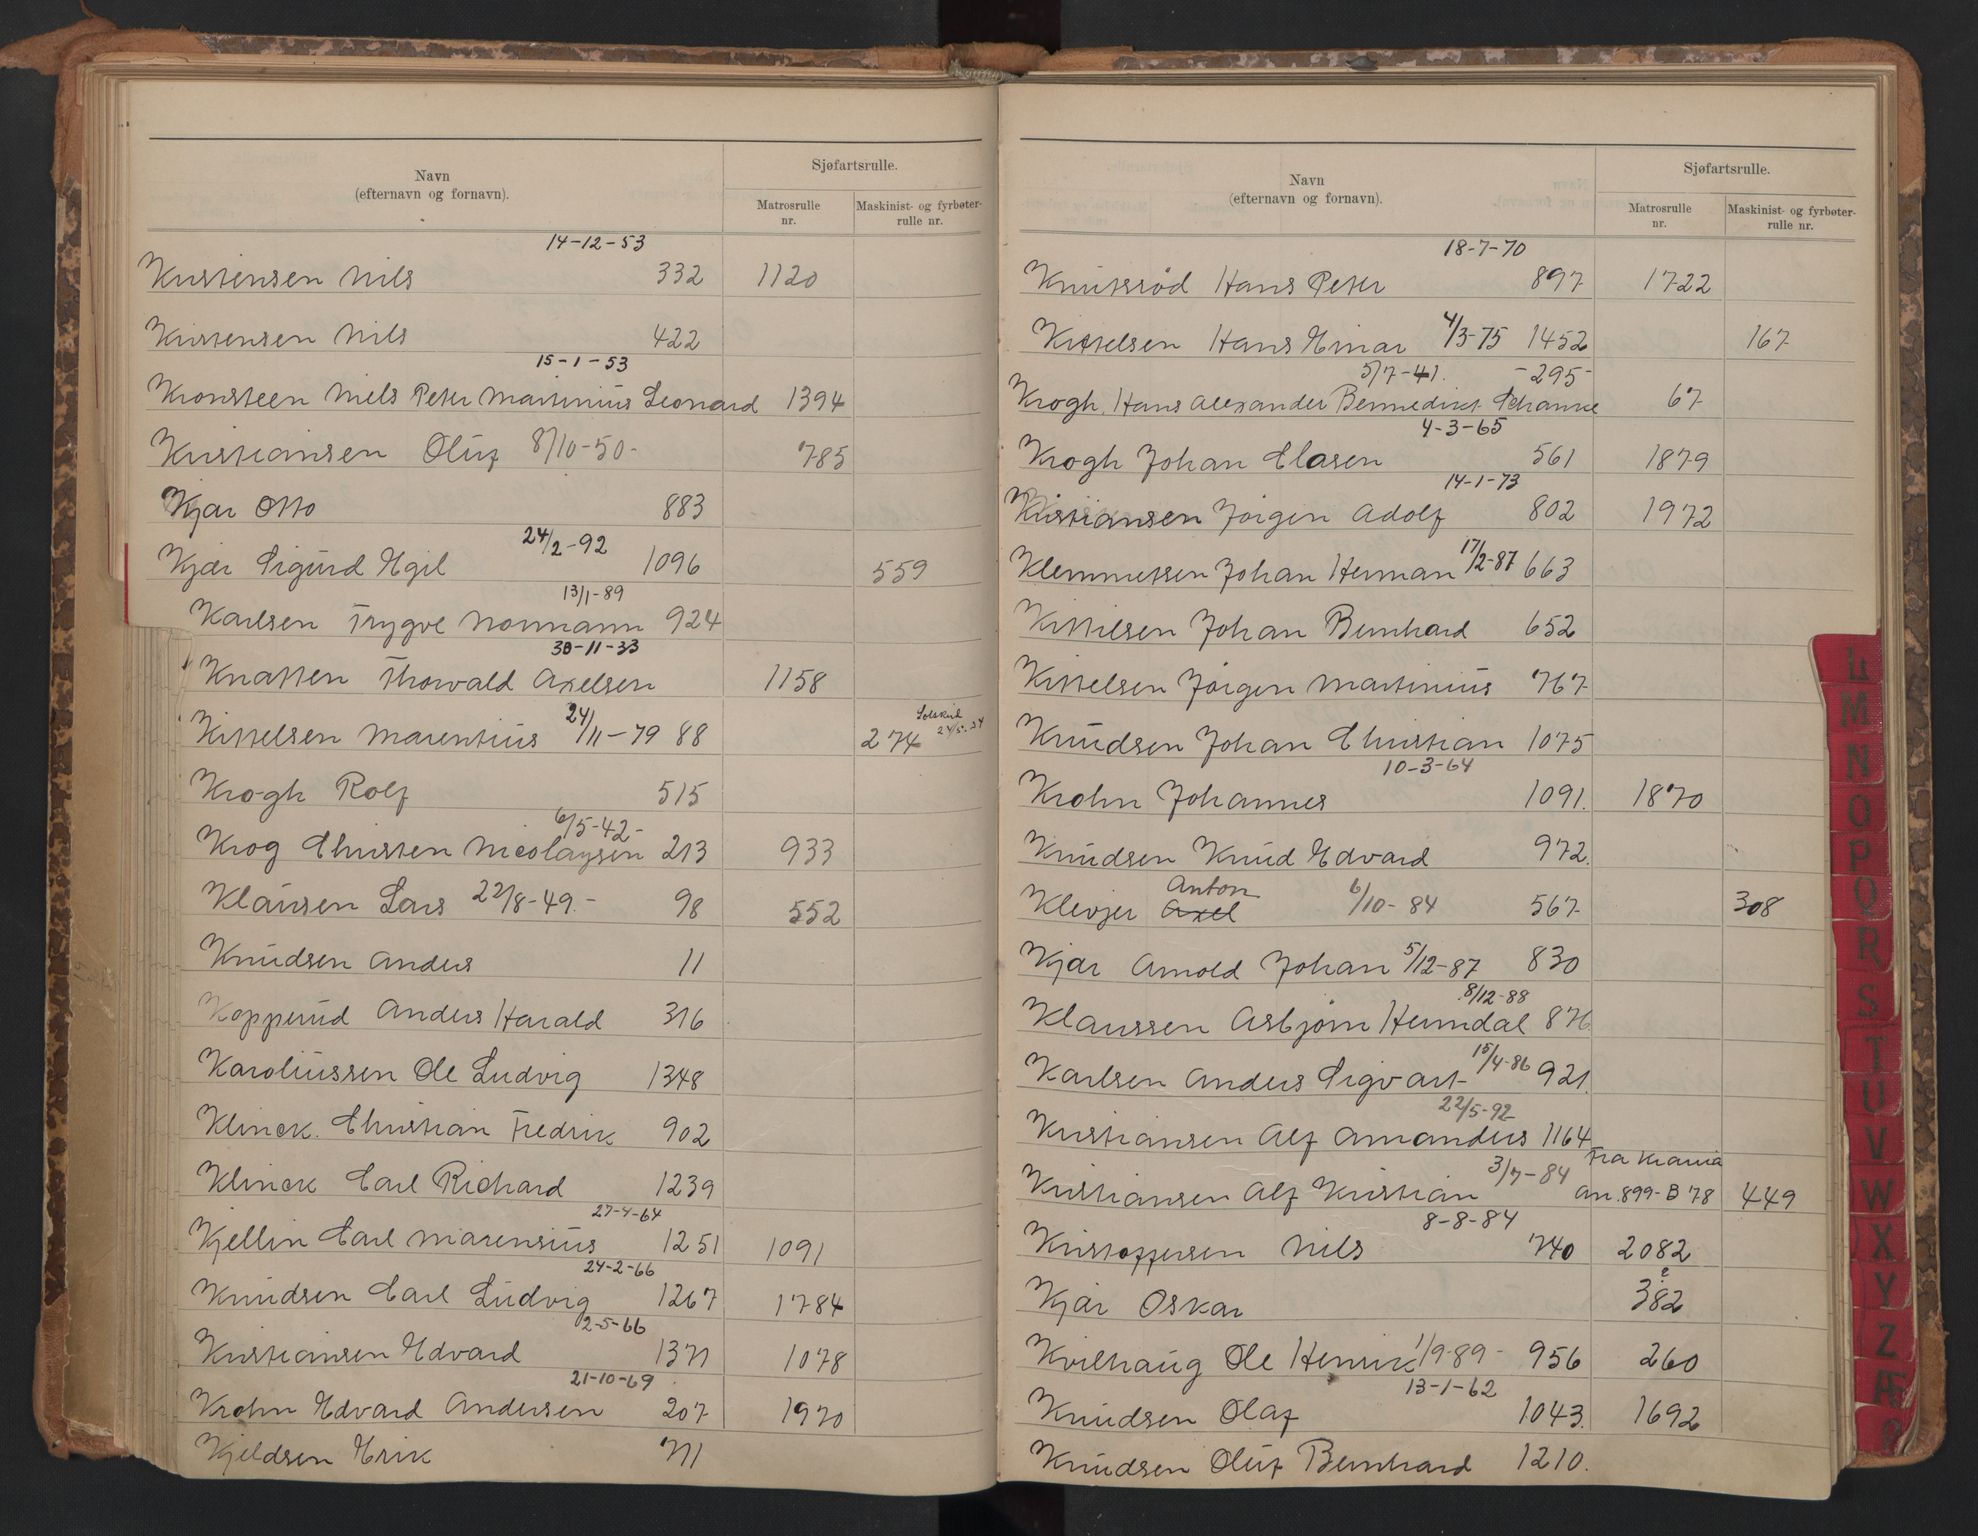 Navn
(efternavn og fornavn).
Sjøfartsrulle.
Matrosrulle
nr.
Maskinist- og fyrbøter-
rulle nr.
14-12-53
Kristensen Nils 332 1120
Kristensen Nils 422
15-1-53
Kronsteen Niels Peter Martinius Leonard 1394
Kristiansen Oluf 8/10-50- 785
Kjær Otto 883
Kjær Sigurd Egil 24/2-92 1096 559
13/1-89
Karlsen Trygve Normann 924
30-11-33
Knatten Thorvald Axelsen 1158
Kittelsen Marentius 24/11-79 88 274
Krogh Rolf 515
6/5-42-
Krog Christen Nicolaysen 213 933
Klausen Lars 22/8-49.- 98 552
Knudsen Anders 11
Kopperud Anders Harald 316
Karoliussen Ole Ludvig 1348
Klinck. Christian Fredrik 902
Klinck Carl Richard 1239
27-4-64
Kjellin Carl Marensius 1251 1091
24-2-66
Knudsen Carl Ludvig 1267 1784
2-5-66
Kristiansen Edvard 1371 1078
21-10-69
Krohn Edvard Andersen 207 1970
Kjeldsen Erik 711
Navn
(efternavn og fornavn).
Sjøfartsrulle.
Matrosrulle
nr.
Maskinist- og fyrbøter-
rulle nr.
18-7-70
Knutsrød Hans Peter 897 1722
Kittelsen Hans Einar 4/3-75 1452 167
5/7-41. -295-
Krogh, Hans Alexander Bennedict Schanke 67
4-3-65
Krogh Johan Clasen 561 1879
14-1-73
Kristiansen Jørgen Adolf 802 1972
Klemmetsen Johan Herman 17/2-87 663
Kittilsen Johan Bernhard 652
Kittelsen Jørgen Martinius 767
Knudsen Johan Christian 1075
10-3-64
Krohn Johannes 1091. 1870
Knudsen Knud Edvard 972.
Anton
Klevjer Axel 6/10-84 567 308
Kjær Arnold Johan 5/12-87 830
8/12-88
Klaussen Asbjørn Heimdal 876
Karlsen Anders Sigvart 15/4-86 921.
22/5-92
Kristiansen Alf Amandus 1164
Fra Krania
Kristiansen Alf Kristian 3/7-84 An.899-B 78 449
8-8-84
Kristoffersen Nils 740 2082
Kjær Oskar 382
Kvilhaug Ole Henrik 1/9-89- 956 260
13-1-62
Knudsen Olaf 1043. 1692
Knudsen Oluf Bernhard 1210.
L
M
N
O
P
Q
R
S
T
U
V
W
X
Y
Z
Æ
Ø